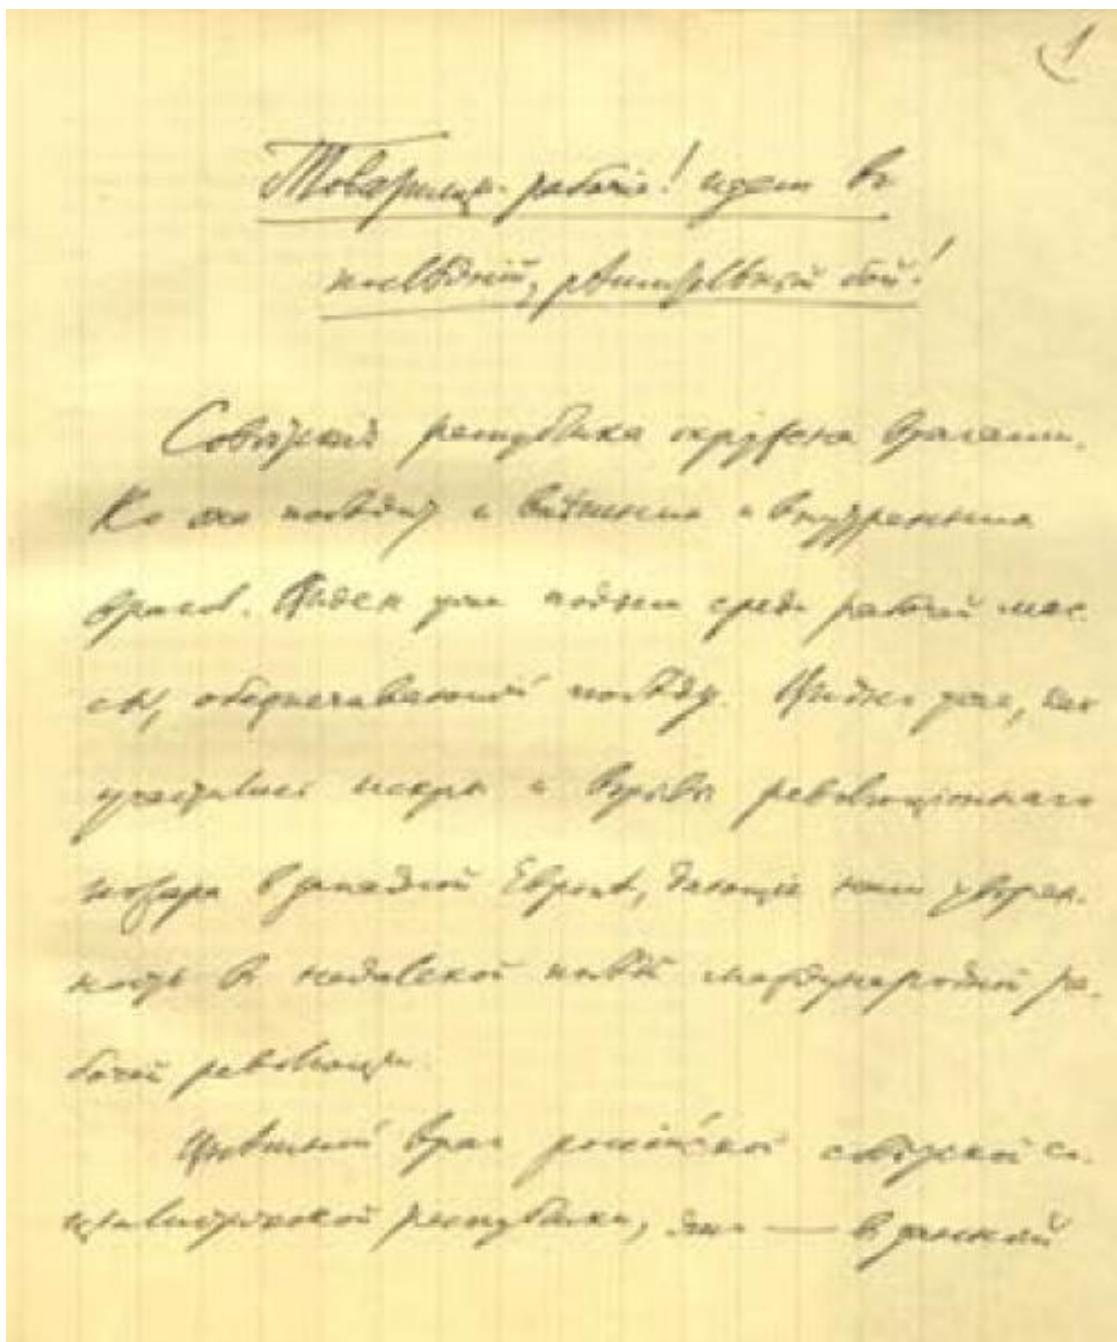 1
Товарищи-рабочіе! идем в
последній, рѣшительный бой!
Совѣтская республика окружена врагами.
Но она побѣдит и внѣшних и внутренних
врагов. Виден уже подъем среди рабочей мас-
сы, обезпечивающій побѣду. Видно уже, как
участились искры и взрывы революціоннаго
пожара в западной Европѣ, дающіе нам уверен-
ность в недалекой побѣдѣ международной ра-
бочей революціи.
Внѣшній враг россійской совѣтской со-
ціалистической республики, это — в данный